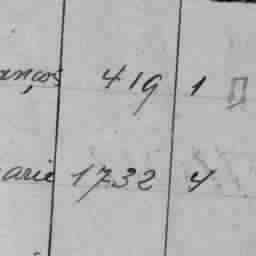 anços 419 1
arie 1732 4